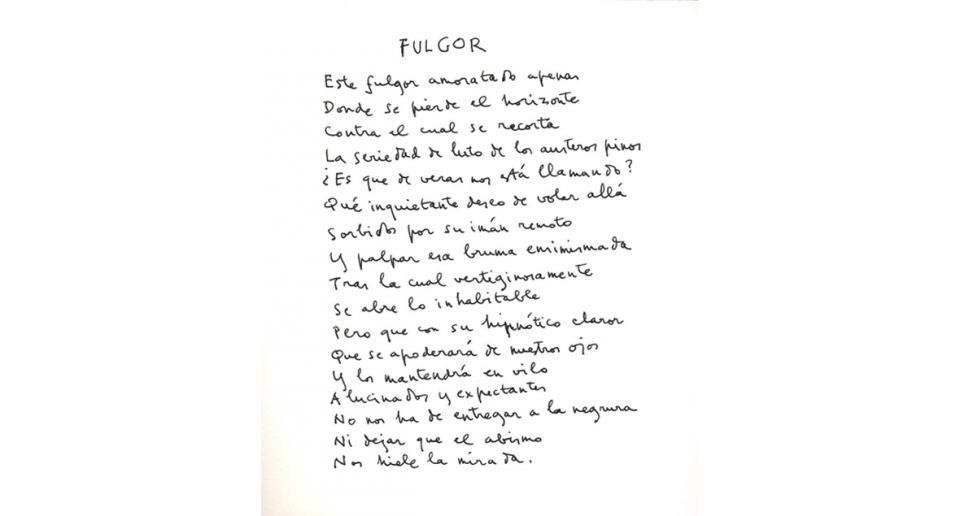 FULGOR
Este fulgor amoratado apenas
Donde se pierde el horizonte
Contra el cual se recorta
La seriedad de luto de los austeros pinos
¿Es que de veras nos está llamando?
Qué inquietante deseo de volar allá
Sorbidos por su imán remoto
Y palpar esa bruma ensimismada
Tras la cual vertiginosamente
Se abre lo inhabitable
Pero que con su hipnótico claror
Que se apoderará de nuestros ojos
Y los mantendrá en vilo
Alucinados y expectantes
No nos ha de entregar a la negrura
Ni dejar que el abismo
Nos hiele la mirada.